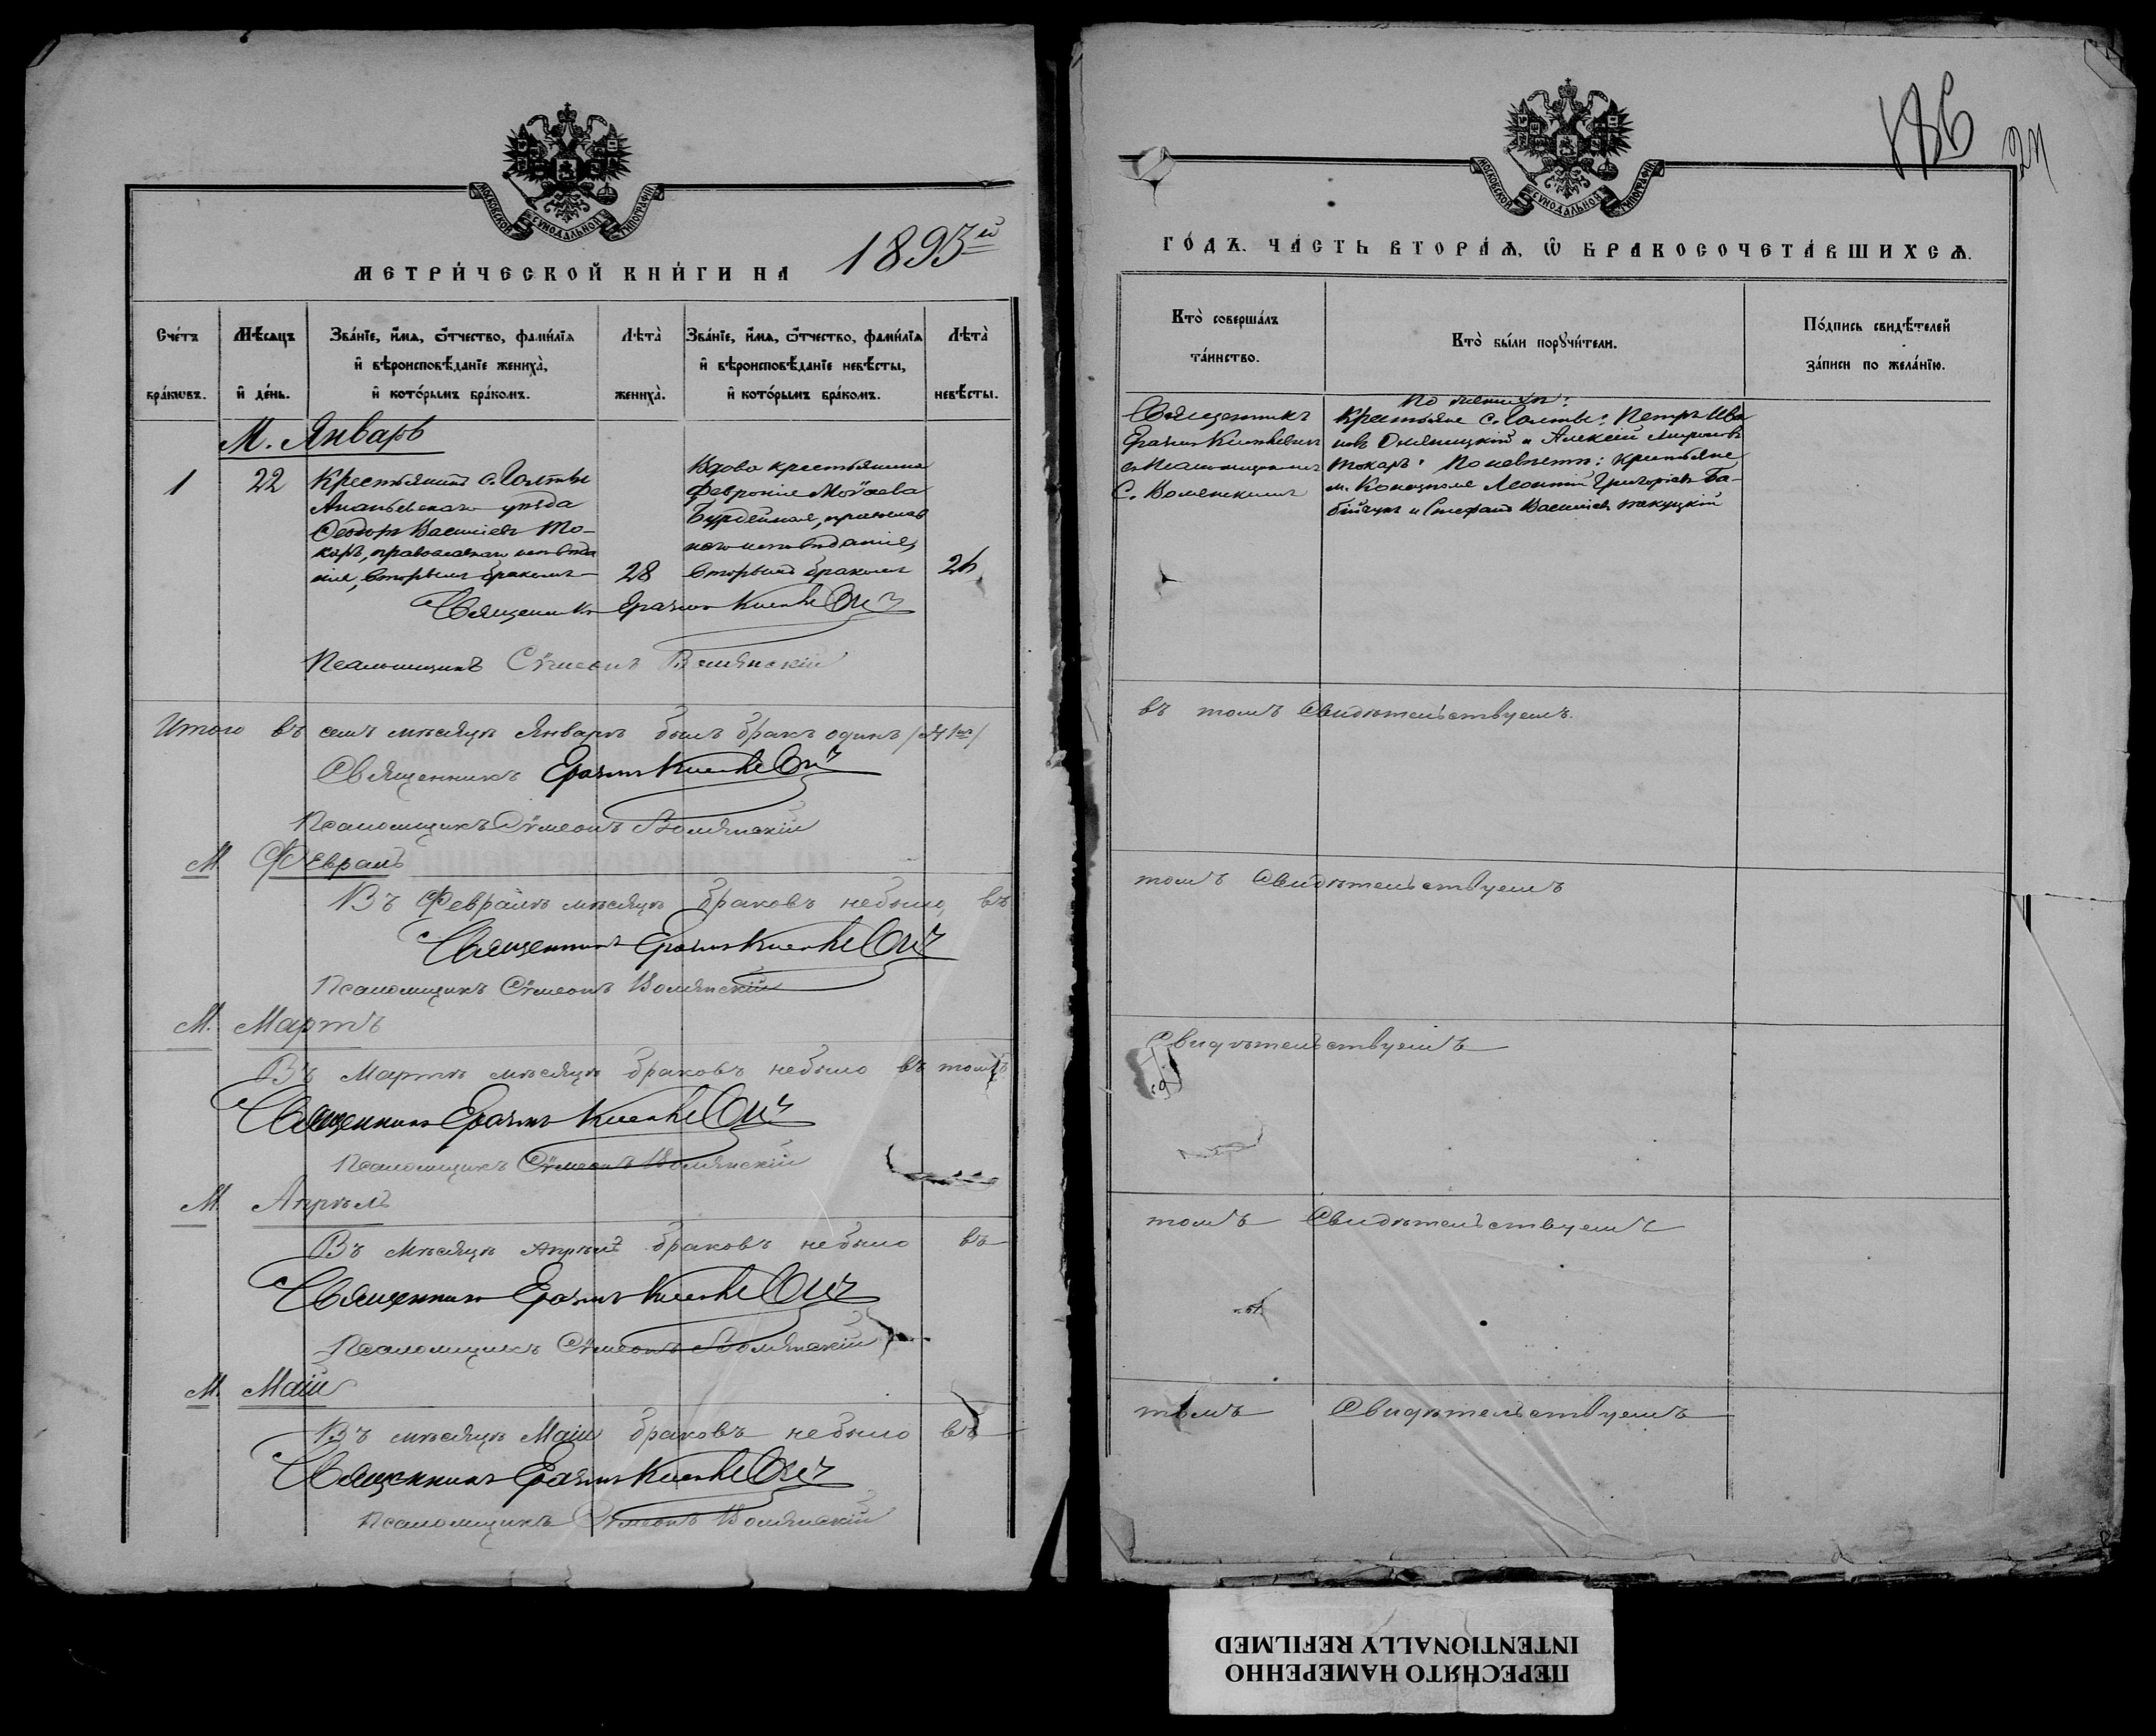 МОСКОВСКОЙ СѴНОДАЛЬНОЙ ТИПОГРАФІИ
МЕТРИ́ЧЕСКОЙ КНИ́ГИ НА 1893й
Сче́тъ бра́кѡвъ.
Мѣ́сяцъ и҆ де́нь.
Зва́нїе, и҆́мѧ, ѻ҆́тчество, фами́лїѧ
и҆ вѣроисповѣ́данїе жениха̀,
и҆ кото́рымъ бра́комъ.
Лѣта̀ жениха̀.
Зва́нїе, и҆́мѧ, ѻ҆́тчество, фами́лїѧ
и҆ вѣроисповѣ́данїе невѣ́сты,
и҆ кото́рымъ бра́комъ.
Лѣта̀ невѣ́сты.
М. Январь
1
22
Крестьянинъ с. Голты
Ананьевскаго уѣзда
Ѳеодоръ Васильевъ То-
каръ, православнаго исповѣда
нія, вторымъ бракомъ
28
Вдова крестьянина
Февронія Моѵсеева
православ
наго исповѣданія,
вторымъ бракомъ
26
Священникъ Еразмъ
Псаломщикъ Сѵмеонъ Волянскій
Итого въ семъ мѣсяцѣ Январѣ былъ бракъ одинъ /№ 1й/
Священникъ Еразмъ
Псаломщикъ Сѵмеонъ Волянскій
М Февраль
Въ Февралѣ мѣсяцѣ браковъ небыло, въ
Священникъ Еразмъ
Псаломщикъ Сѵмеонъ Волянскій
М. Мартъ
Въ Мартѣ мѣсяцѣ браковъ небыло въ томъ
Священникъ Еразмъ
Псаломщикъ Сѵмеонъ Волянскій
М Апрѣль
Въ мѣсяцѣ Апрѣлѣ браковъ небыло въ
Священникъ Еразмъ
Псаломщикъ Сѵмеонъ Волянскій
М. Май
Въ мѣсяцѣ Маѣ браковъ небыло въ
Священникъ Еразмъ
Псаломщикъ Сѵмеонъ Волянскій
186
МОСКОВСКОЙ СѴНОДАЛЬНОЙ ТИПОГРАФІИ
ГО́ДЪ. ЧА́СТЬ ВТОРА́Ѧ, Ѽ БРАКОСОЧЕТА́ВШИХСѦ.
Кто̀ соверша́лъ
та́инство.
Кто̀ бы́ли порꙋчи́тели.
По́дпись свидѣ́телей
за́писи по жела́нїю.
Священникъ
Еразмъ
съ Псаломщикомъ
С. Волянскимъ
По женихѣ:
Крестьяне с. Голты: Петръ Ива
новъ и Алексій Мироновъ
Токаръ. По невѣстѣ: крестьяне
м. Конецполя Леонтій Григорьевъ Ба-
и Стефанъ Васильевъ
въ томъ свидѣтельствуемъ.
томъ свидѣтельствуемъ
свидѣтельствуемъ
томъ свидѣтельствуемъ
томъ свидѣтельствуемъ
ПЕРЕСНЯТО НАМЕРЕННО
INTENTIONALLY REFILMED